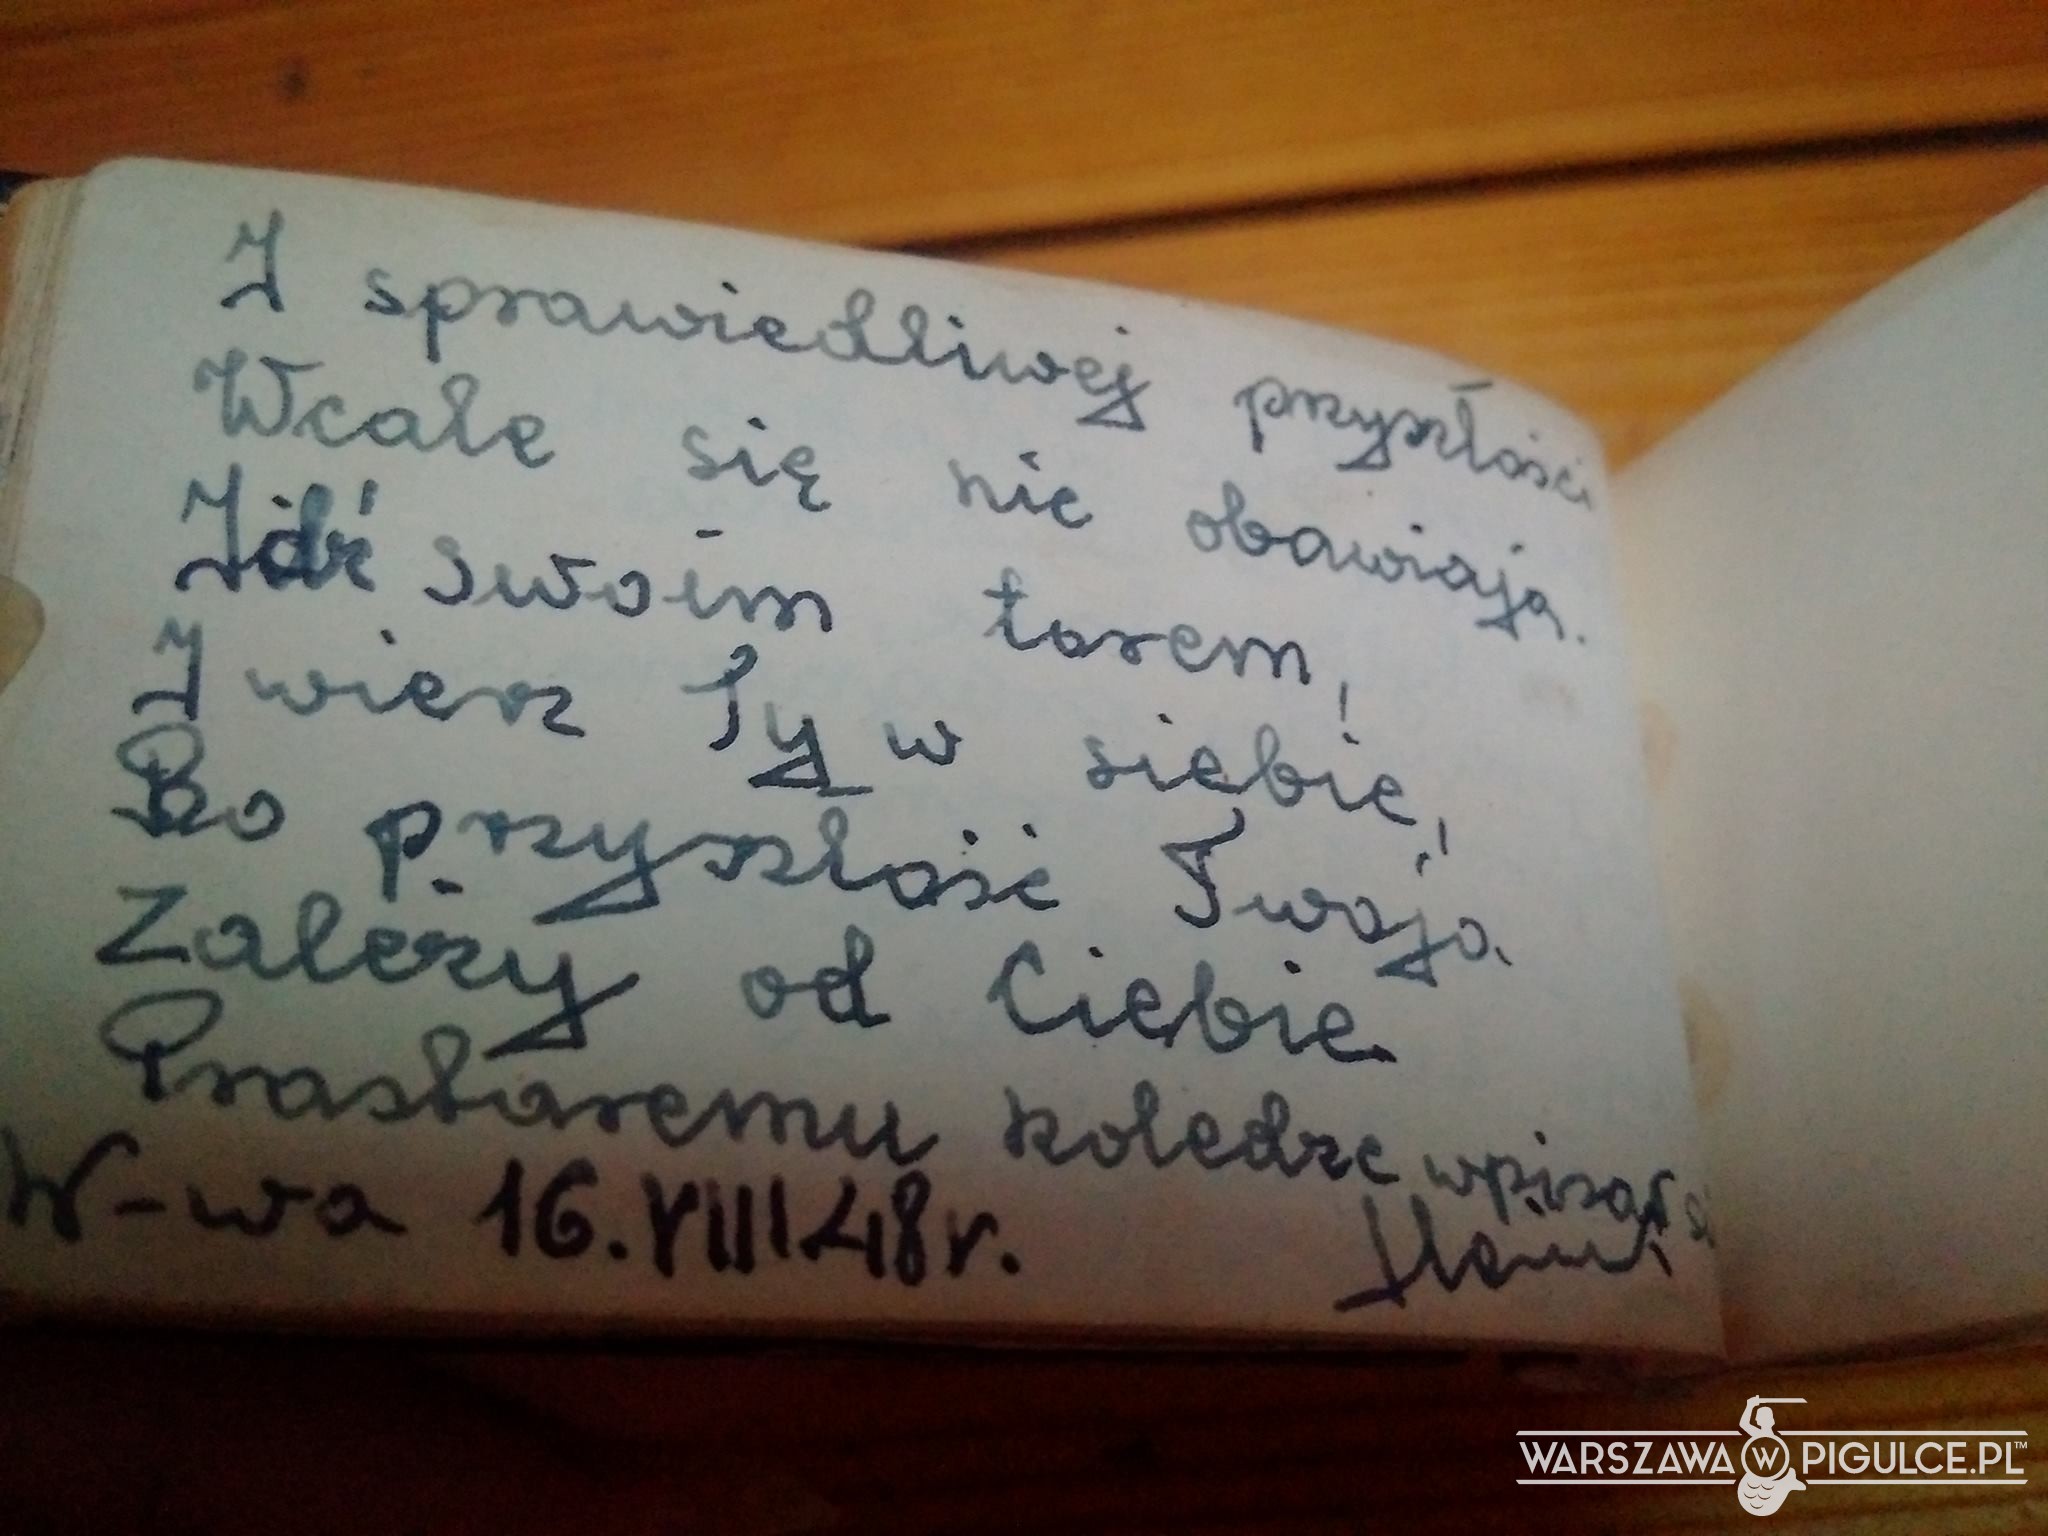 I sprawiedliwej przyszłości
Wcale się nie obawiają.
Idź swoim torem,
I wierz Ty w siebie,
Bo przyszłość Twoja
Zależy od Ciebie
Prastaremu koledze wpisał
W-wa 16.VIII48r.
WARSZAWA W PIGULCE.PL™